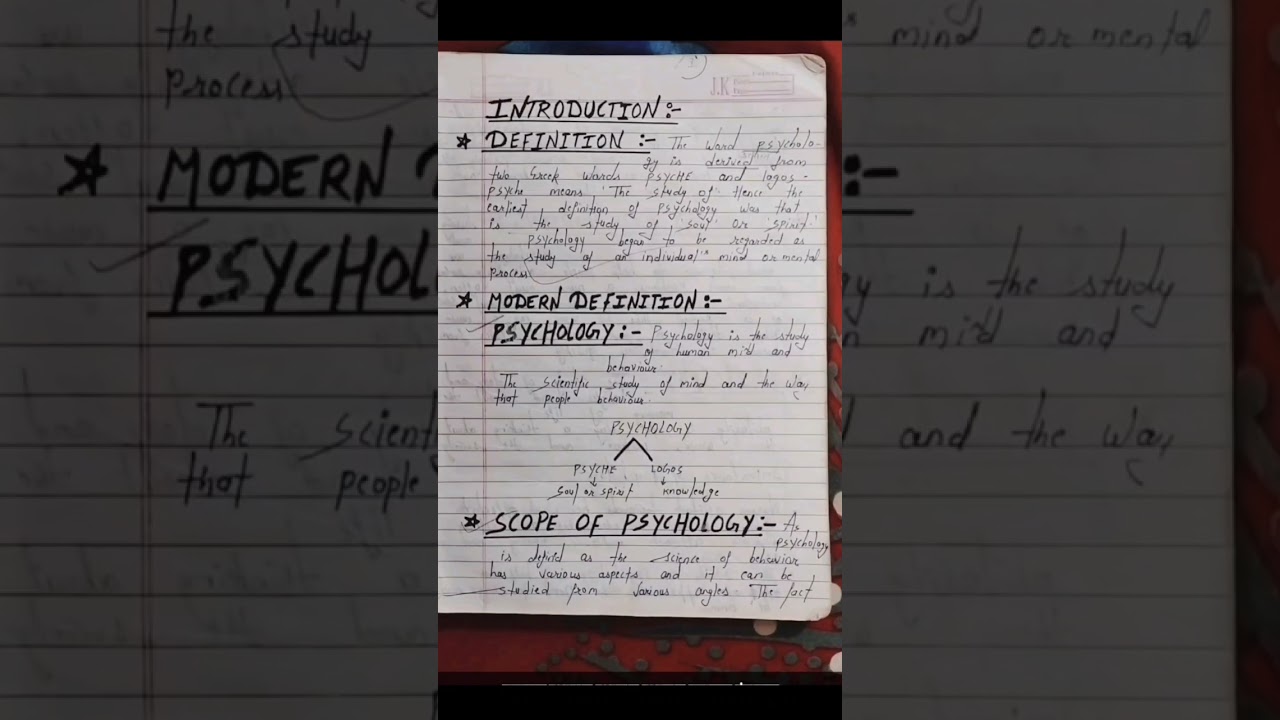 J.K
INTRODUCTION :-
★ DEFINITION :- The word psycholo-
gy is derived from
two Greek words PSYCHE and logos -
psyche means 'The study of Hence the
earliest definition of psychology was that
is the study of 'soul' or 'spirit'
psychology began to be regarded as
the study of an individual's mind or mental
process
★ MODERN DEFINITION :-
PSYCHOLOGY :- Psychology is the study
of human mi'd and
behaviour.
The scientific study of mind and the way
that people behaviour.
PSYCHOLOGY
PSYCHE LOGOS
soul or spirit knowledge
★ SCOPE OF PSYCHOLOGY :- As
psychology
is defied as the science of behavior
has various aspects and it can be
studied from various angles. The fact
the study
process
mind or mental
★ MODERN
:-
PSYCHOL
gy is the study
mi'd and
The scient
that people
and the way